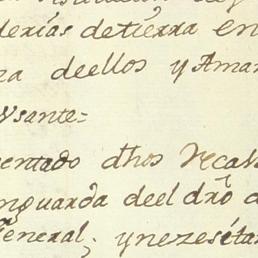 derias detierra en
za deellos y Amar
Vsante=
entado dhos Vecav
nguarda deel dro de
General; ynezesitar